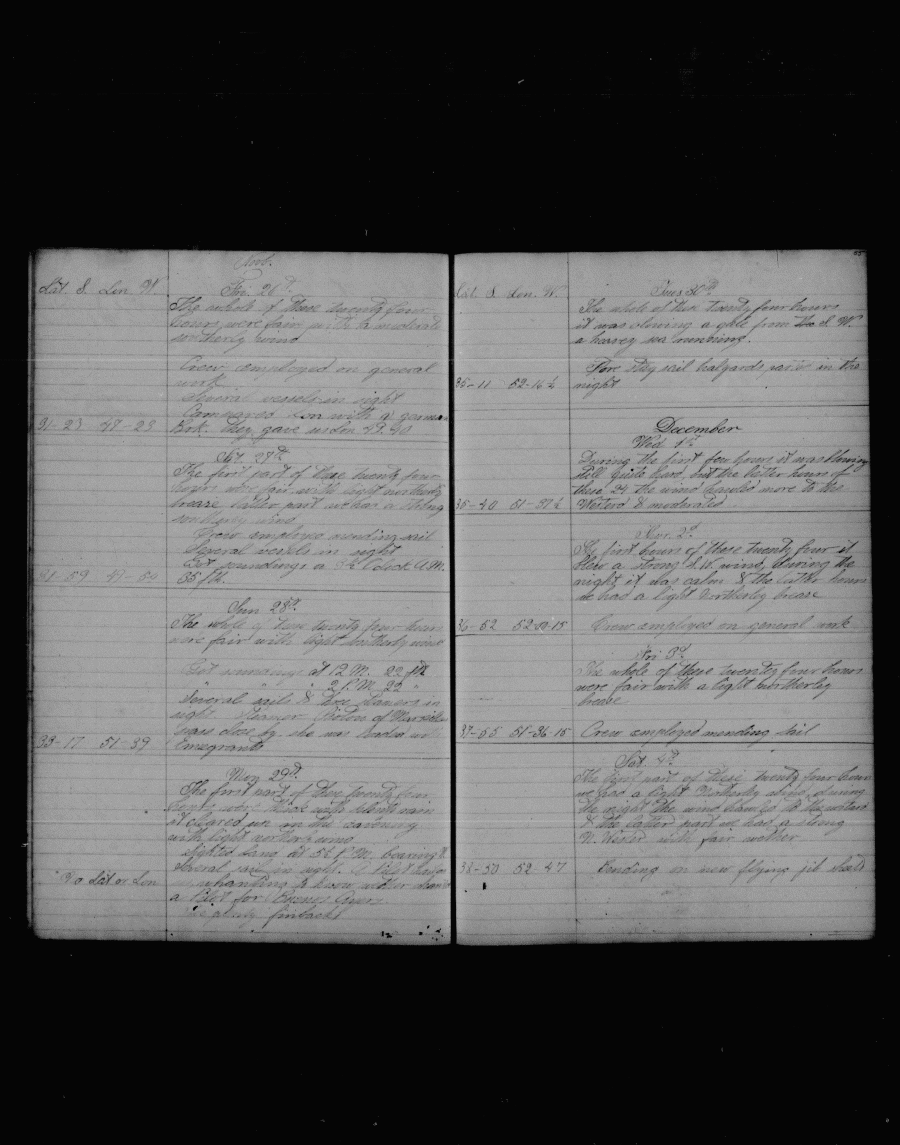 Nov.
Lat S. Lon W.
Fri. 26th
The whole of these twenty four
hours were fair with a moderate
northerly wind
Crew employed on general
work
Several vessels in sight
Compared Lon with a german
31-23 47-23 Bark. they gave us Lon 49.40
Sat. 27th
The first part of these twenty four
hours were fair with light northerly
brease latter part we had a strong
northerly wind
Crew employed mending sail
Several vessels in sight
Got soundings a Oclock A.M.
31-59 49-50 35 fth.
Sun 28th
The whole of these twenty four hours
were fair with light northerly wind
Got soundings at 12 M. 22 fth
" " 2 P.M. 22 "
Several sails & three steamers in
sight. Steamer of Marseilles
pass close by she was loaded with
33-17 51-39 Emegrants
Mon 29th
The first part of these twenty four
hours were thick with rain
it cleared up in the evening
with light north wind
Sighted land at P.M. bearing W.
Several sail in sight. A Pilot
to know
No Lat or Lon
a Pilot for Buenes Ayers
55
Lat S. Lon W.
Tues 30th
The whole of these twenty four hours
it was blowing a gale from the S W.
a heavey sea running.
Fore stay sail halyards parted in the
35-11 52-16½ night
December
Wed 1st
During the first few hours it was blowing
still quite hard, but the latter hours of
these 24 the wind hauled more to the
35-40 51-37½ Westerd & moderated
Thur. 2d
The first hours of these twenty four it
blew a strong S.W. wind, during the
night it was calm & the latter hours
we had a light Northerley brease
36-52 52 15 Crew employed on general work
Fri 3d
The whole of these twenty four hours
were fair with a light northerley
brease
37-05 51-36-15 Crew employed mending sail
Sat 4th
The first part of these twenty four hours
we had a light Northerley wind, during
the night the wind hauled to the westerd
& the latter part we had a strong
N. Wester with fair wether
38-30 52-47 Bending on new flying jib